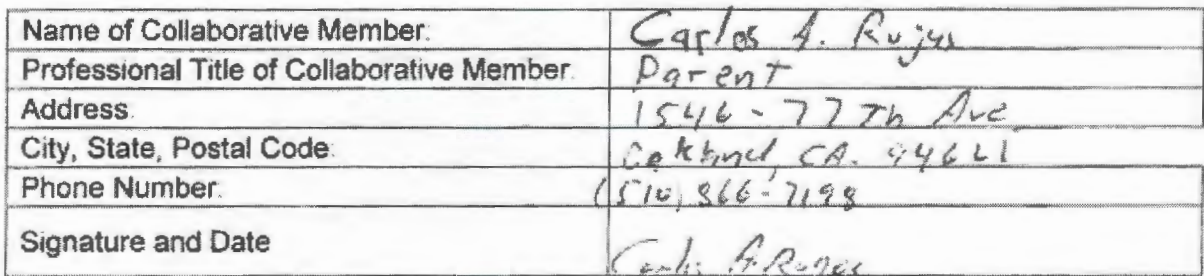 Name of Collaborative Member: Carlos A. Rojas
Professional Title of Collaborative Member: Parent
Address: 1546 - 77 Th Ave
City, State, Postal Code: Oakland, CA. 94621
Phone Number: (510) 866-7198
Signature and Date Carlos A. Rojas